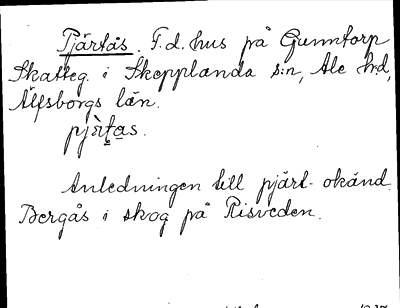 Pjärtås. F.d. hus på Gunntorp
Skatteg. i Skepplanda s:n, Ale hd,
Älfsborgs län.
pjärtas.
Anledningen till pjärt- okänd.
Bergås i skog på Risveden.